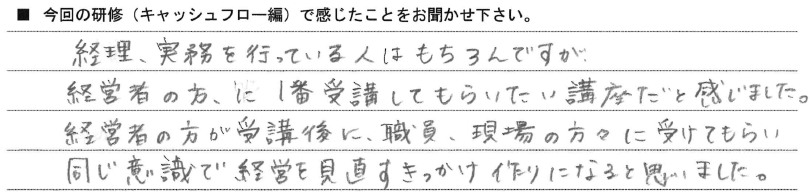 ■ 今回の研修（キャッシュフロー編）で感じたことをお聞かせ下さい。
経理、実務を行っている人はもちろんですが
経営者の方、に1番受講してもらいたい講座だと感じました。
経営者の方が受講後に、職員、現場の方々に受けてもらい
同じ意識で経営を見直すきっかけ作りになると思いました。